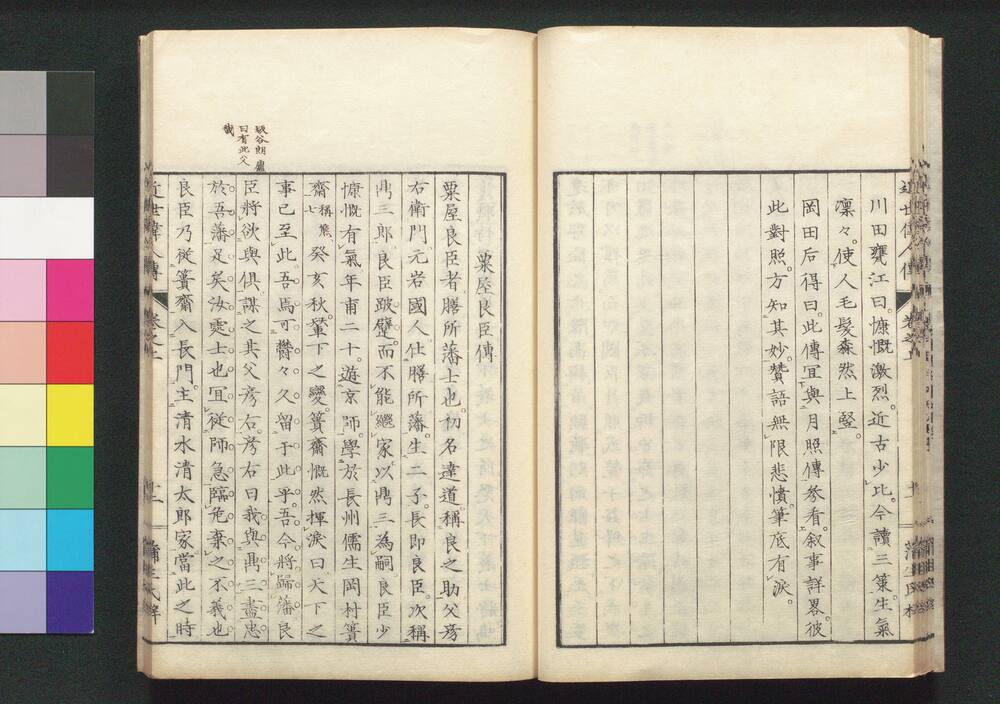 川田甕江曰。慷慨激烈。近古少比。今讀三策生氣
凜々。使人毛髮森然上竪。
岡田后得曰。此傳宜與月照傳參看。叙事詳畧。彼
此對照。方知其妙。贊語無限悲憤。筆底有淚。
粟屋良臣傳
粟屋良臣者。膳所藩士也。初名達道。稱良之助。父彦
右衛門。元岩國人。仕膳所藩。生二子。長即良臣。次稱
鼎三郎。良臣跛躄。而不能繼家。以鼎三為嗣。良臣少
慷慨有氣。年甫二十。遊京師。學於長州儒生岡村簣
齋 稱熊七 癸亥秋。輦下之變。簣齋慨然揮淚曰。天下之
事已至此。吾焉可欝々久留于此乎。吾今將歸藩。良
臣將欲與俱。謀之其父彦右。彦右曰。我與鼎三盡忠
於吾藩足矣。汝處士也。宜從師急。臨危棄之不義也
良臣乃從簣齋入長門。主清水清太郎家。當此之時
谷朗廬
曰有此父
近世偉人傳
卷之上
十二
蒲生氏梓